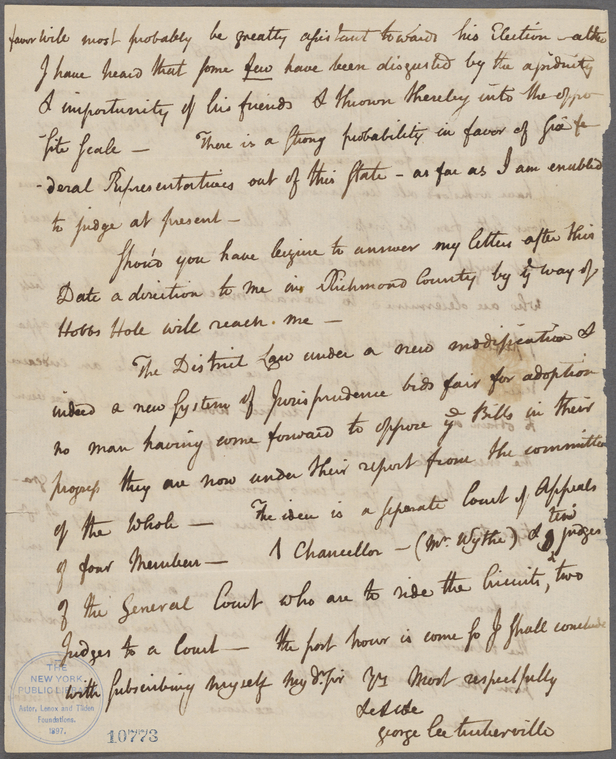 favor will most probably be greatly assistant towards his Election – altho
I have heard that some few have been disgusted by the assiduity
& importunity of his friends & thrown thereby into the oppo
-site Scale — There is a strong probability in favor of Six fe
-deral Representatives out of this State – as far as I am enabled
to judge at present –
Shou'd you have leizure to answer my letters after this
Date a direction to me in Richmond County by ye way of
Hobbs Hole will reach me –
The District Law under a new modification &
indeed a new System of Jurisprudence bids fair for adoption
no man having come forward to oppose ye Bills in their
progress they are now under their report from the committee
of the Whole – The idea is a separate Court of Appeals
of four Members – 1 Chancellor – (Mr. Wythe) & ten Judges
of the General Court who are to ride the Circuits, two
Judges to a Court – the post hour is come so I shall conclude
with subscribing myself my dr Sir Yrs Most respectfully
george lee turberville
THE
NEW YORK
PUBLIC LIBRARY
Astor, Lenox and Tilden
Foundations.
1897.
10773